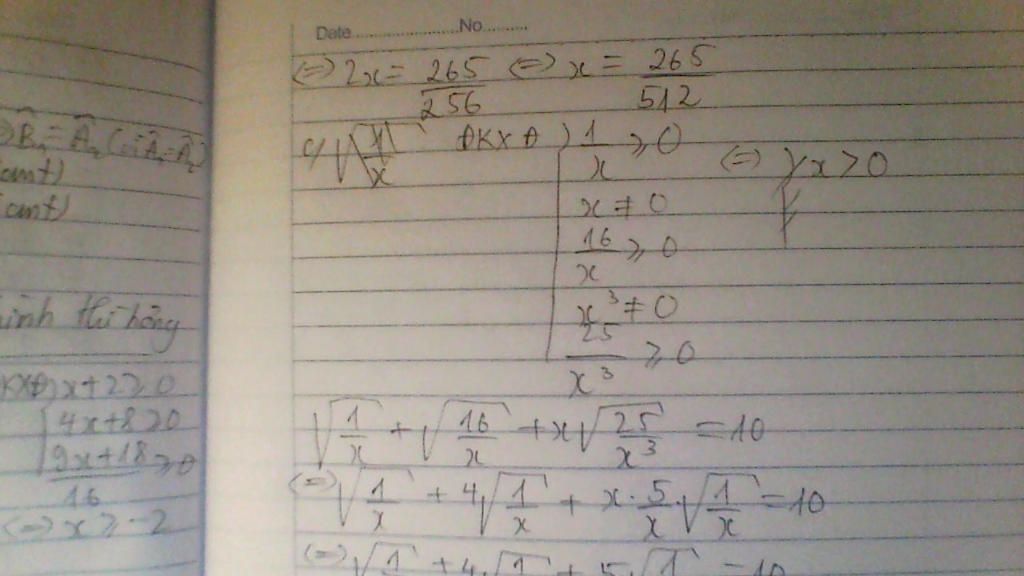 ⇒ B̂₁ = Â₂ (vì Â₁ = Â₂)
(cmt)
(cmt)
hình thi hông
ĐKXĐ x+2 ≥ 0
4x+8 ≥ 0
9x+18 / 16 ≥ 0
⇔ x ≥ -2
Date No
⇔ 2x = 265/256 ⇔ x = 265/512
c) √(1/x) ĐKXĐ 1/x ≥ 0 ⇔ x > 0
x ≠ 0
16/x ≥ 0
x³ ≠ 0
25/x³ ≥ 0
√(1/x) + √(16/x) + x√(25/x³) = 10
⇔ √(1/x) + 4√(1/x) + x · 5/x · √(1/x) = 10
⇔ √1 + 4√1 + 5√1 = 10